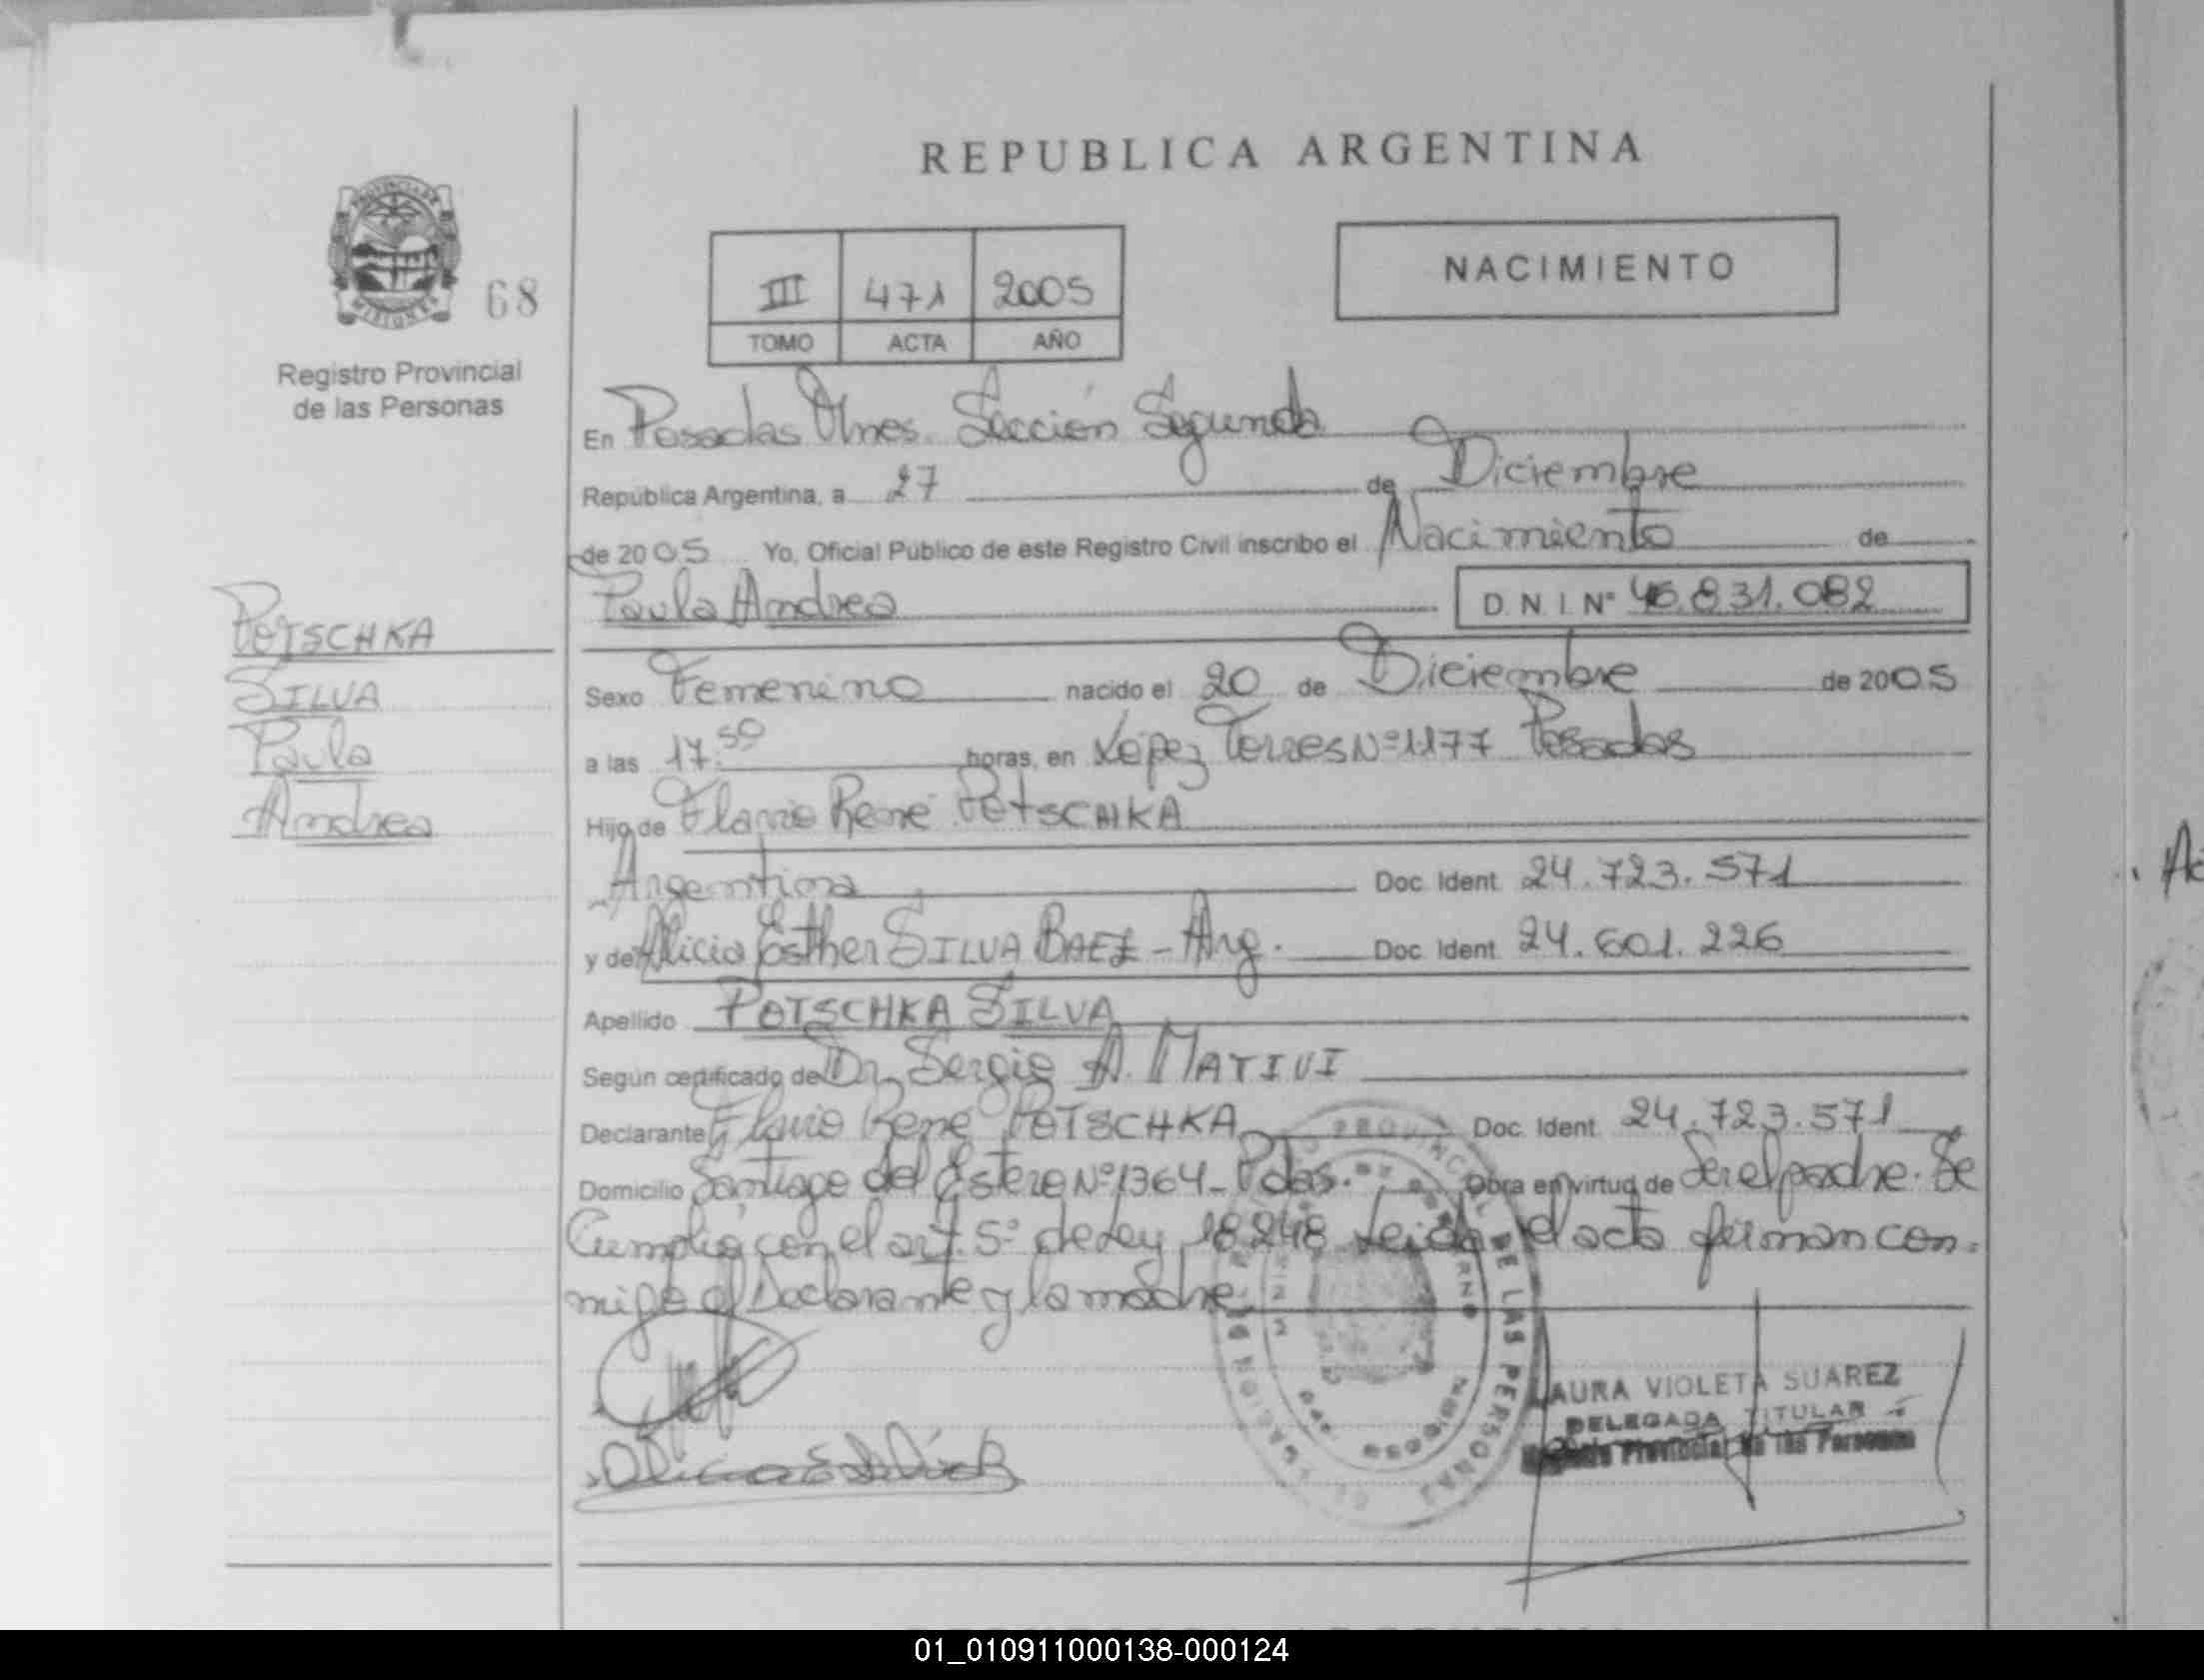 REPUBLICA ARGENTINA
NACIMIENTO
68
III 471 2005
TOMO ACTA AÑO
Registro Provincial
de las Personas
En Posadas Mnes. Sección Segunda
República Argentina, a 27 de Diciembre
de 2005 Yo, Oficial Público de este Registro Civil inscribo el Nacimiento de
Paula Andrea D.N.I. Nº 46.831.082
POTSCHKA
SILVA
Paula
Andrea
Sexo Femenino nacido el 20 de Diciembre de 2005
a las 17.50 horas, en López Torres Nº 1177 Posadas
Hijo de Flavio René POTSCHKA
Argentina Doc. Ident. 24.723.571
y de Alicia Esther SILVA BAEZ - Arg. Doc. Ident. 24.601.226
Apellido POTSCHKA SILVA
Según certificado de Dr. Sergio A. MATIVI
Declarante Flavio René POTSCHKA Doc. Ident. 24.723.571
Domicilio Santiago del Estero Nº 1364 - Pdas. Obra en virtud de Ser el padre. Se
Cumplió con el art. 5º de Ley 18.248 Leida el acta firman con-
migo el Declarante y la madre
LAURA VIOLETA SUAREZ
DELEGADA TITULAR
Registro Provincial de las Personas
01_010911000138-000124